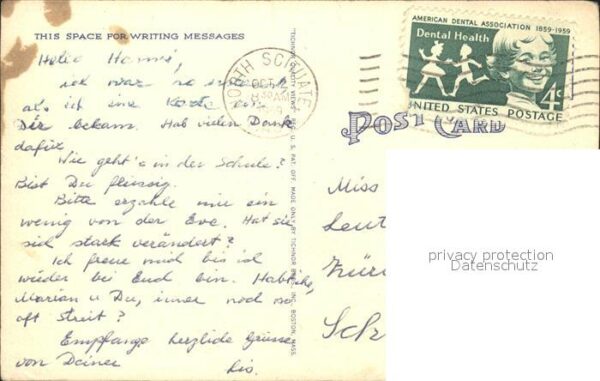 THIS SPACE FOR WRITING MESSAGES
Hallo Hanni,
ich war so
als ich eine Karte von
Dir bekam. Hab vielen Dank
dafür
Wie geht's in der Schule?
Bist Du fleissig.
Bitte erzähle mir ein
wenig von der Eve. Hat sie
sich stark verändert?
Ich freue mich bis ich
wieder bei Euch bin. Habt ihr,
Marian u Du, immer noch so
oft Streit?
Empfange herzliche Grüsse
von Deiner Lis.
NORTH SCITUATE
OCT
AMERICAN DENTAL ASSOCIATION 1859-1959
Dental Health
4¢
UNITED STATES POSTAGE
POST CARD
Miss
Zür
Sch
privacy protection
Datenschutz